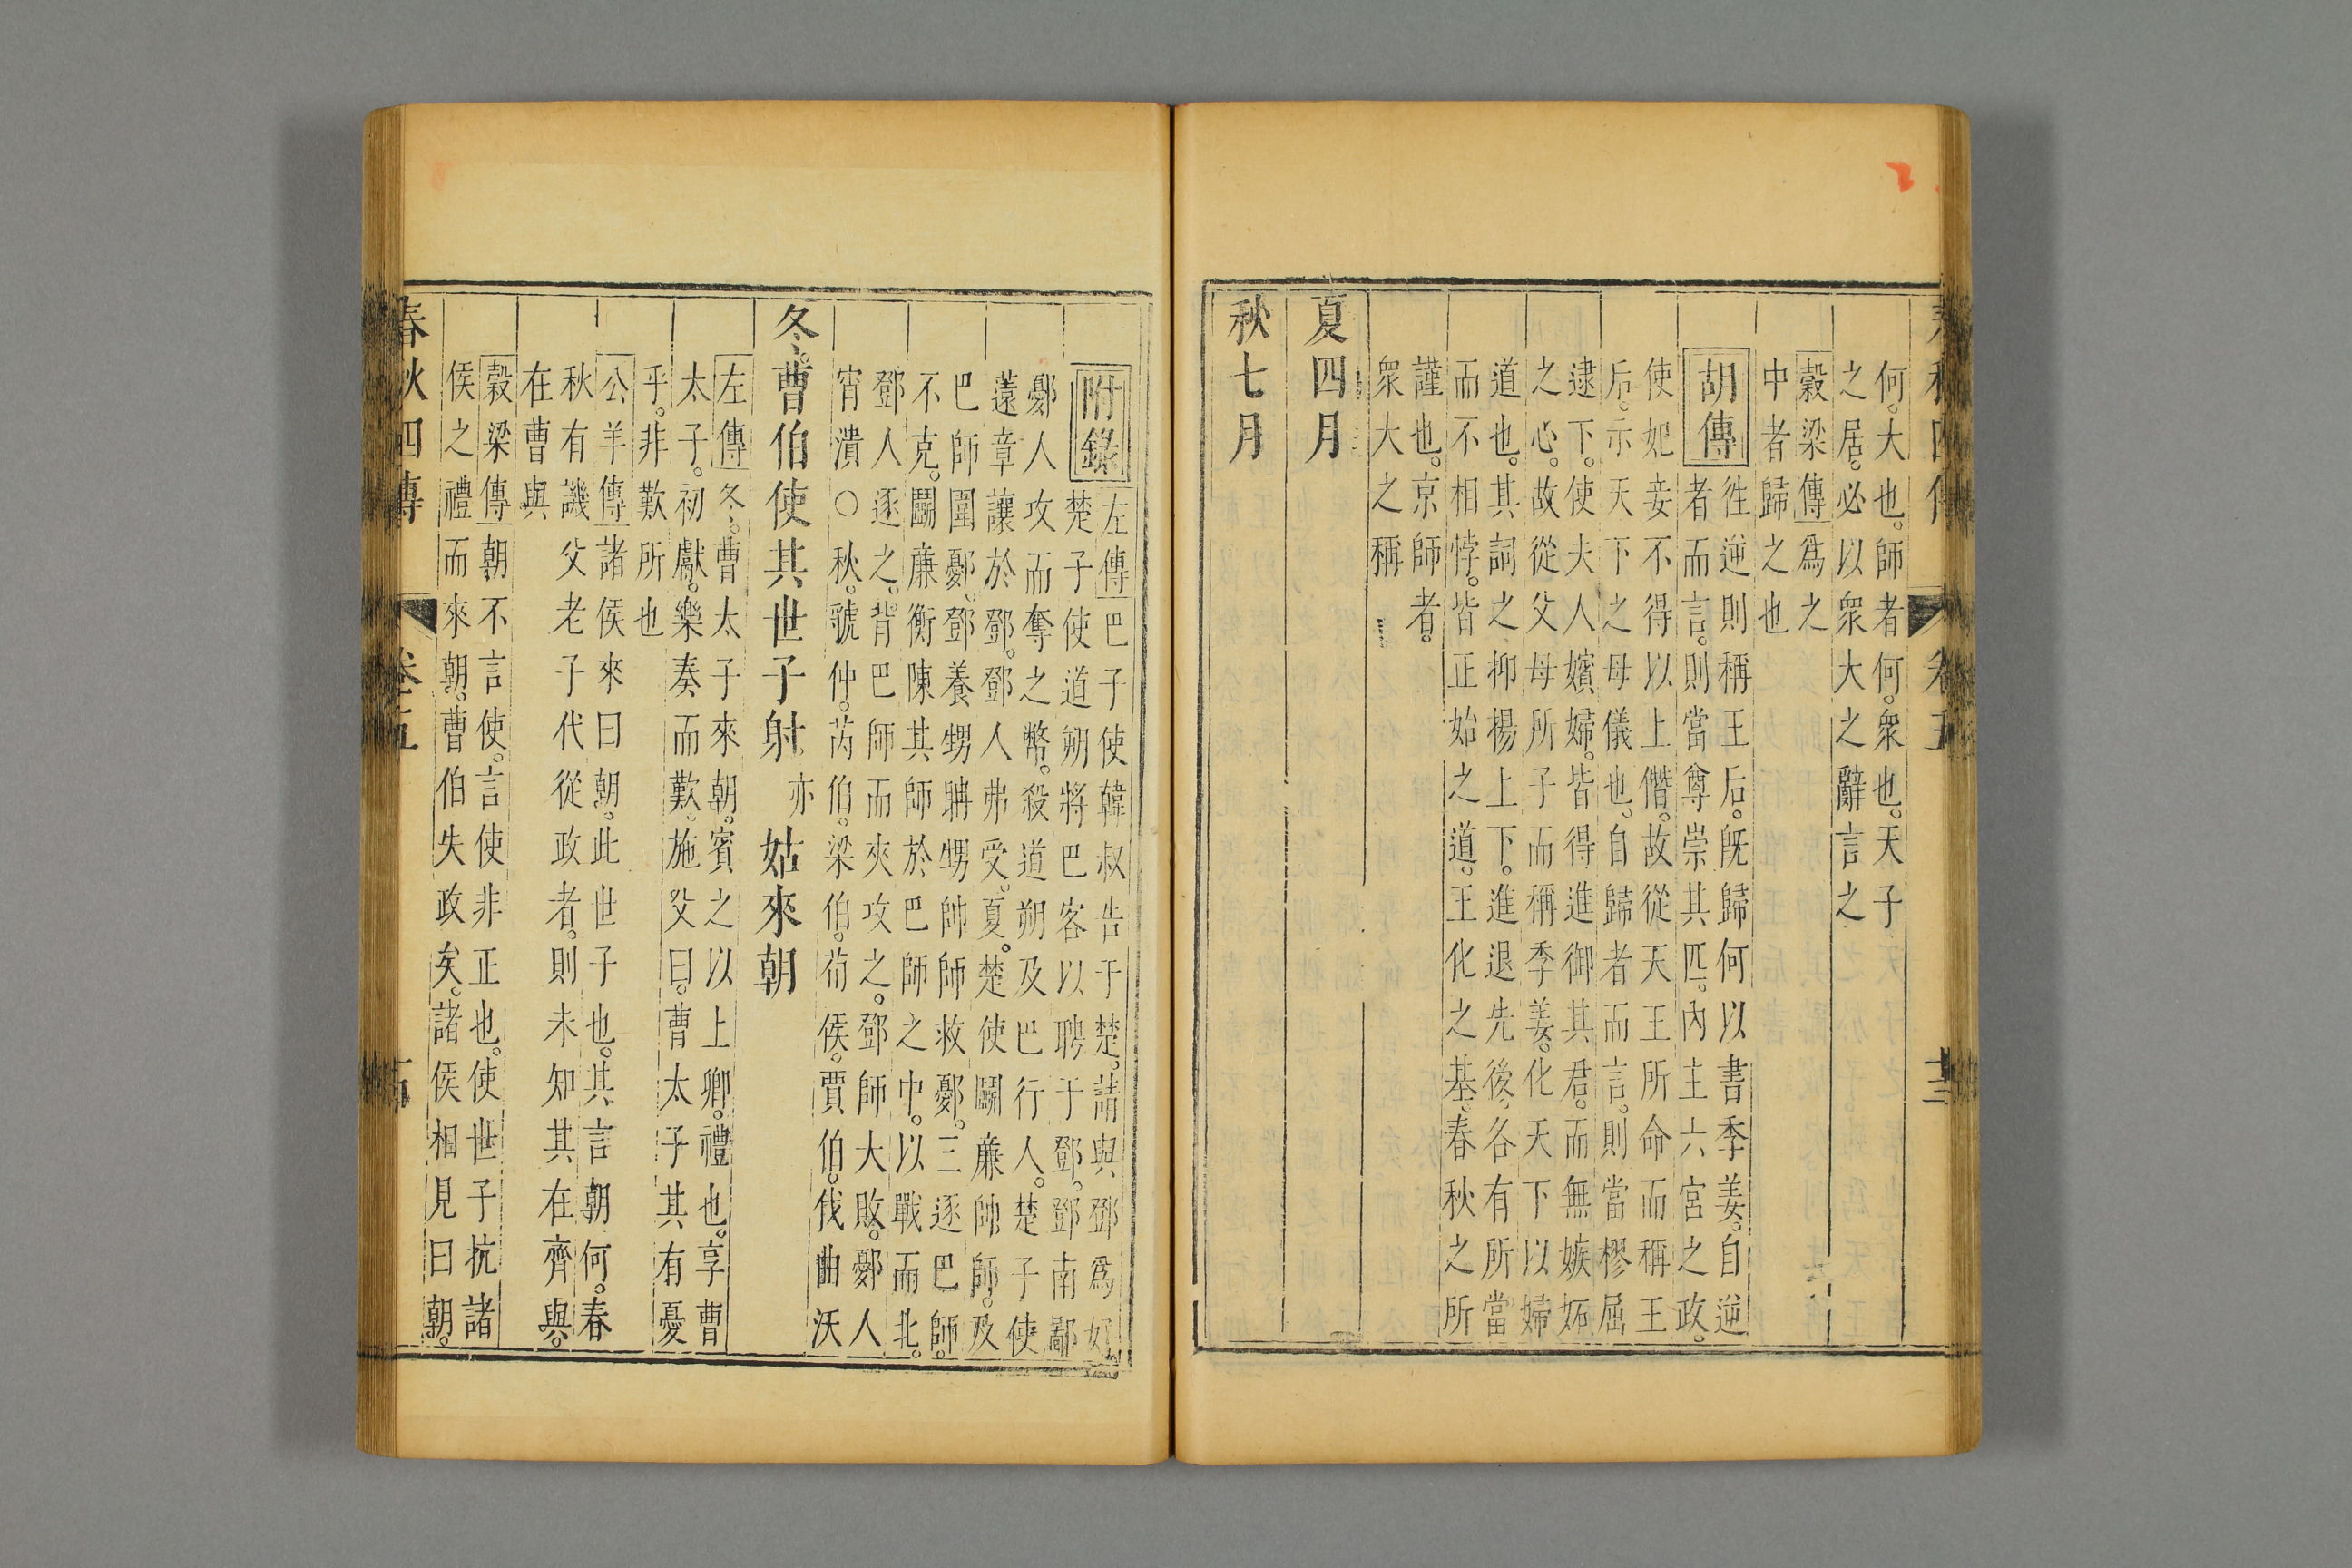 何。大也。師者何。衆也。天子
之居。必以衆大之辭言之
穀梁傳爲之
中者歸之也
胡傳往逆則稱王后。旣歸何以書季姜。自逆
者而言。則當尊崇其匹。內主六宮之政。
使妃妾不得以上僭。故從天王所命而稱王
后。示天下之母儀也。自歸者而言。則當樛屈
逮下。使夫人嬪婦。皆得進御其君。而無嫉妬
之心。故從父母所子而稱季姜。化天下以婦
道也。其詞之抑揚上下。進退先後。各有所當
而不相悖。皆正始之道。王化之基。春秋之所
謹也。京師者。
衆大之稱
夏四月
秋七月
附錄左傳巴子使韓叔告于楚。請與鄧爲好。
楚子使道朔將巴客以聘于鄧。鄧南鄙
鄾人攻而奪之幣。殺道朔及巴行人。楚子使
薳章讓於鄧。鄧人弗受。夏。楚使鬬廉帥師。及
巴師圍鄾。鄧養甥聃甥帥師救鄾。三逐巴師。
不克。鬬廉衡陳其師於巴師之中。以戰而北。
鄧人逐之。背巴師而夾攻之。鄧師大敗。鄾人
宵潰○秋。虢仲。芮伯。梁伯。荀侯。賈伯。伐曲沃
冬。曹伯使其世子射亦姑來朝
左傳冬。曹太子來朝。賓之以上卿。禮也。享曹
太子。初獻。樂奏而歎。施父曰。曹太子其有憂
乎。非歎所也
公羊傳諸侯來曰朝。此世子也。其言朝何。春
秋有譏父老子代從政者。則未知其在齊與。
在曹與
穀梁傳朝不言使。言使非正也。使世子抗諸
侯之禮而來朝。曹伯失政矣。諸侯相見曰朝。
春秋四傳 卷五